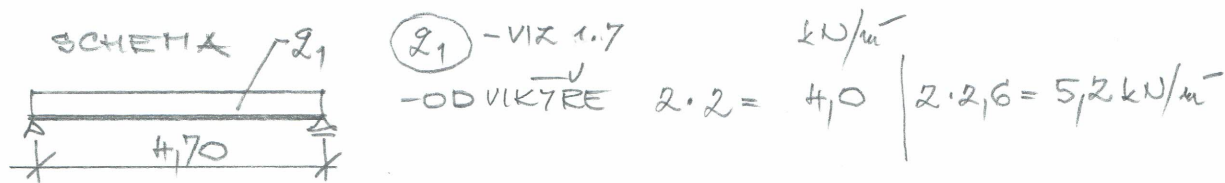 SCHEMA q₁
q₁ - VIZ 1.7 kN/m'
- OD VIKÝŘE 2·2 = 4,0 | 2·2,6 = 5,2 kN/m'
4,70